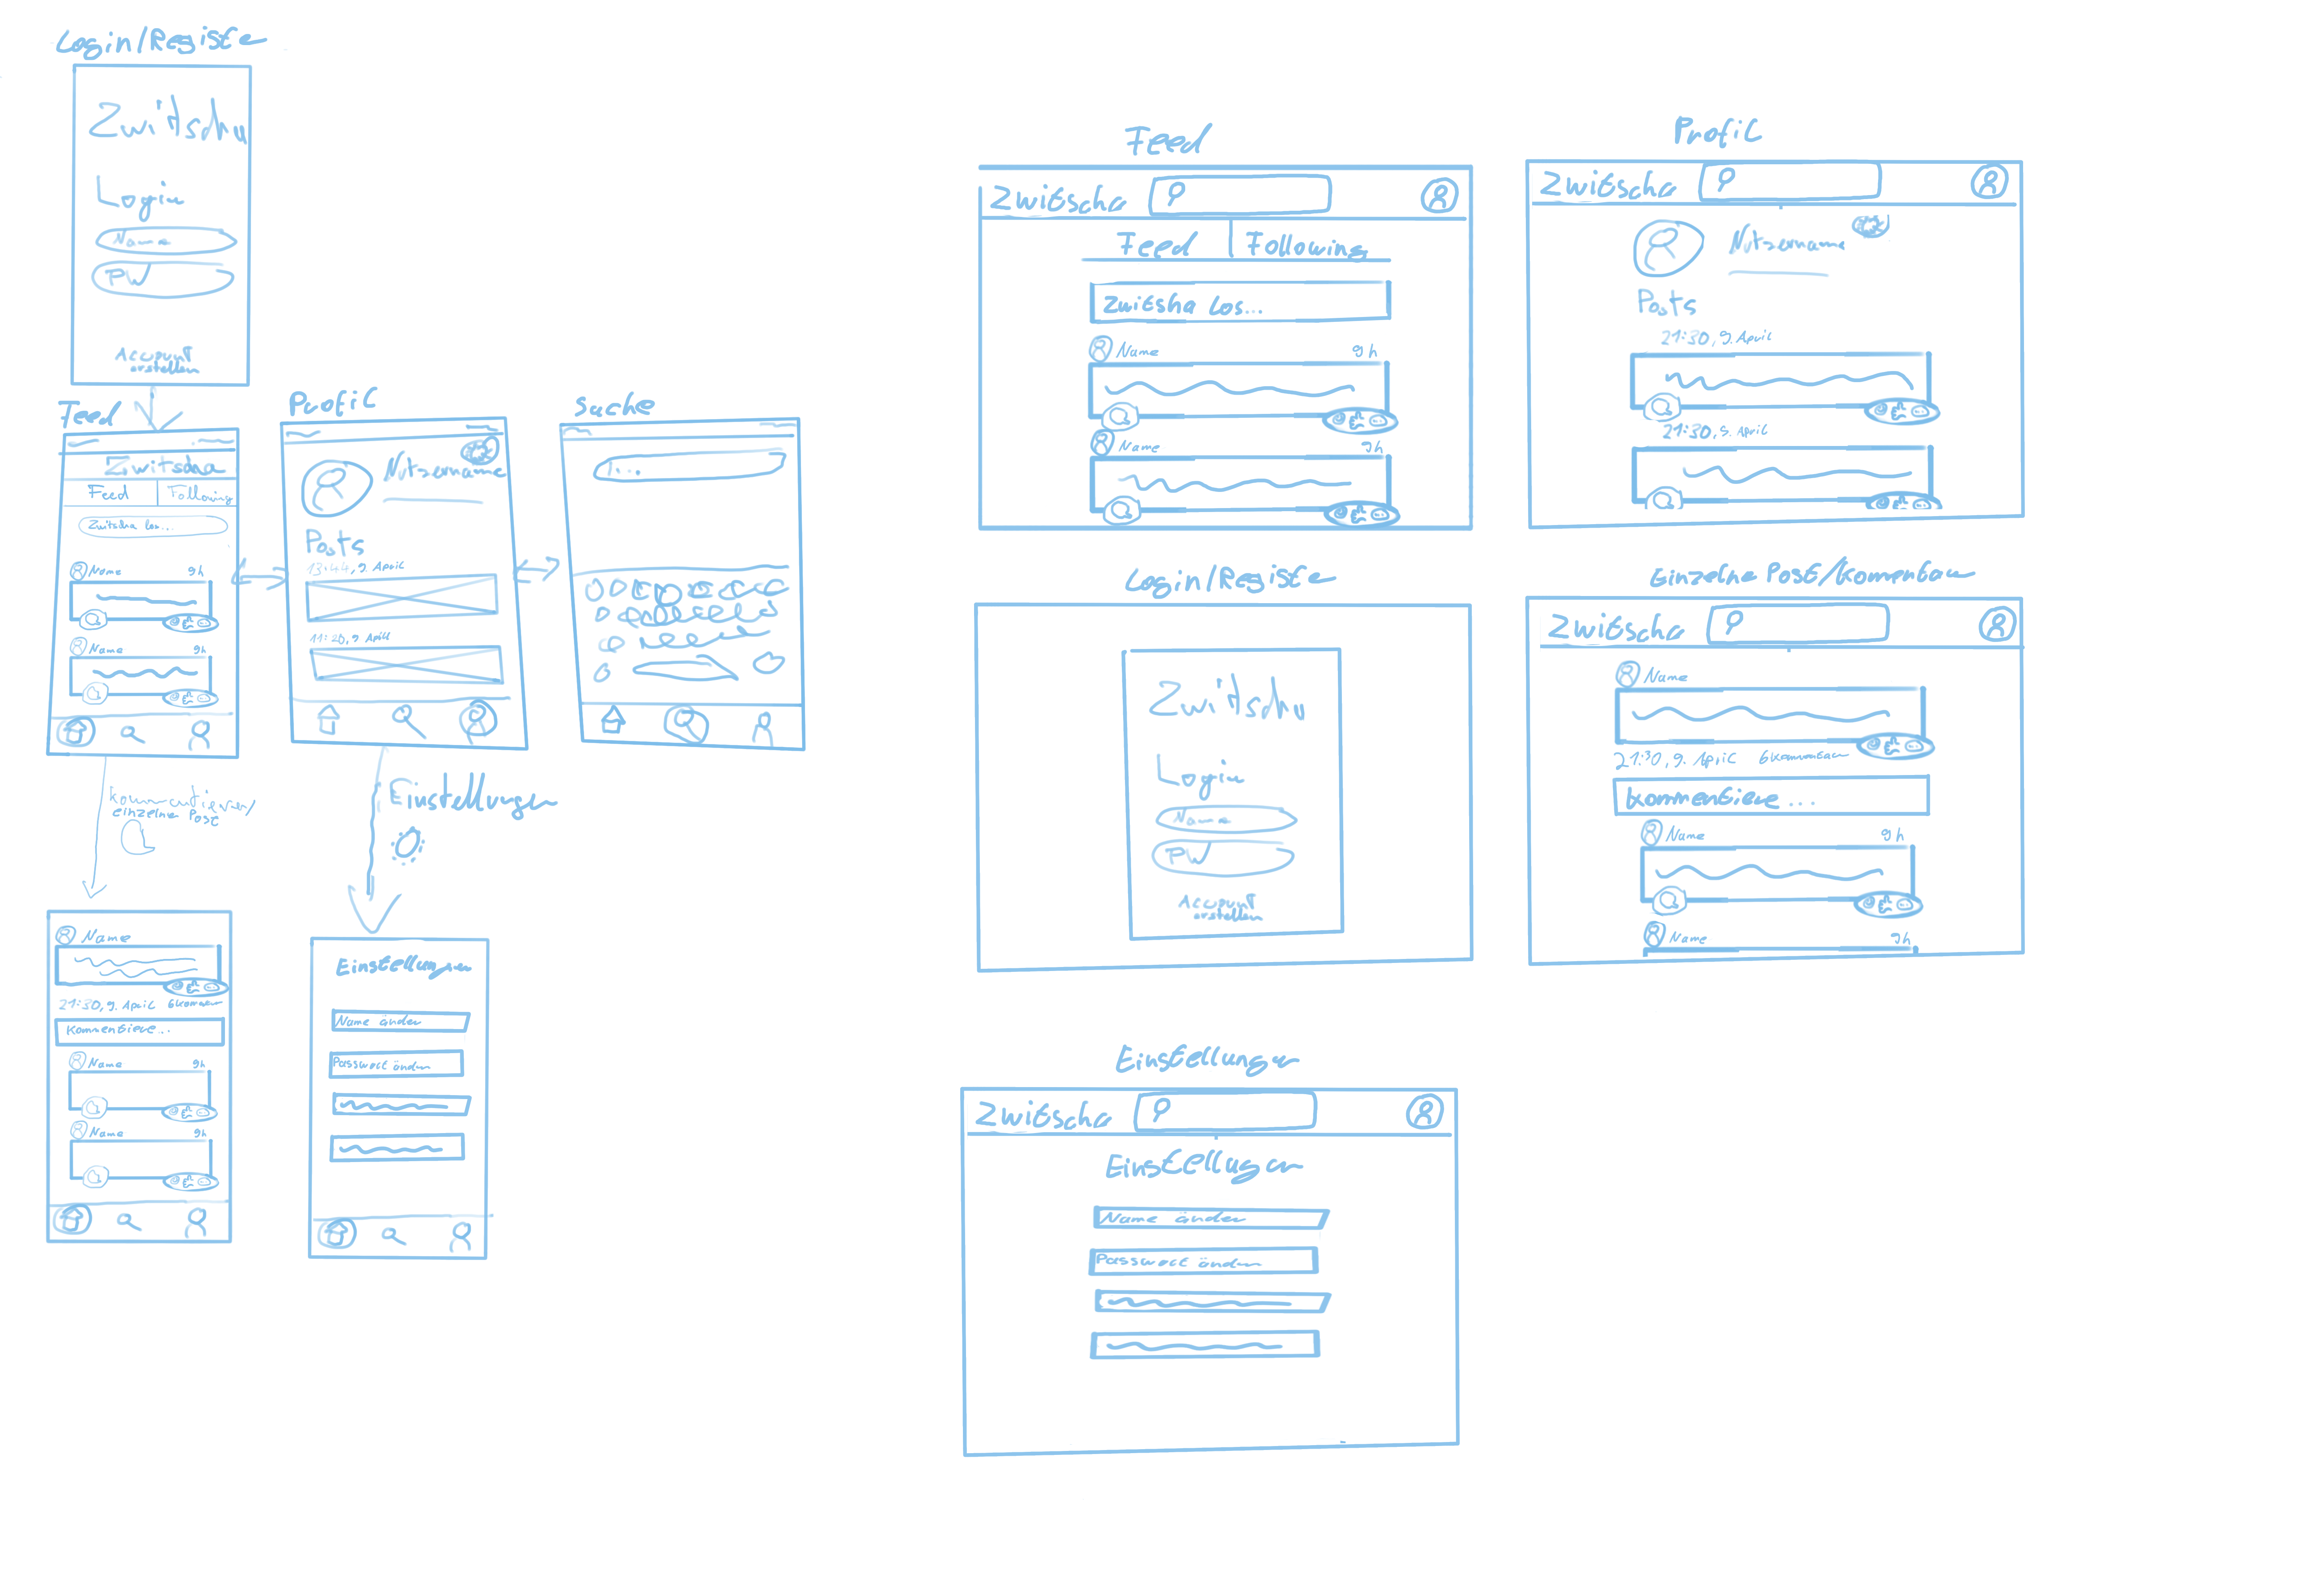 Login/Registe
Zwitscha
Login
Name
PW
Account
erstellen
Feed
Zwitscha
Feed
Following
Zwitscha los...
Name
9h
Name
9h
Profil
Nutzername
Posts
13:44, 9. April
11:20, 9. April
Suche
Kommentieren/
einzelne Post
Einstellungen
Name
21:30, 9. April
Kommentiere...
Name
9h
Name
9h
Einstellungen
Name ändern
Passwort ändern
Feed
Zwitscha
Feed
Following
Zwitscha los...
Name
9h
Name
9h
Profil
Zwitscha
Nutzername
Posts
21:30, 9. April
21:30, 9. April
Login/Registe
Zwitscha
Login
Name
PW
Account
erstellen
Einzelne Post/Komentare
Zwitscha
Name
21:30, 9. April 6 kommentare
kommentiere...
Name
9h
Name
9h
Einstellungen
Zwitscha
Einstellungen
Name ändern
Passwort ändern